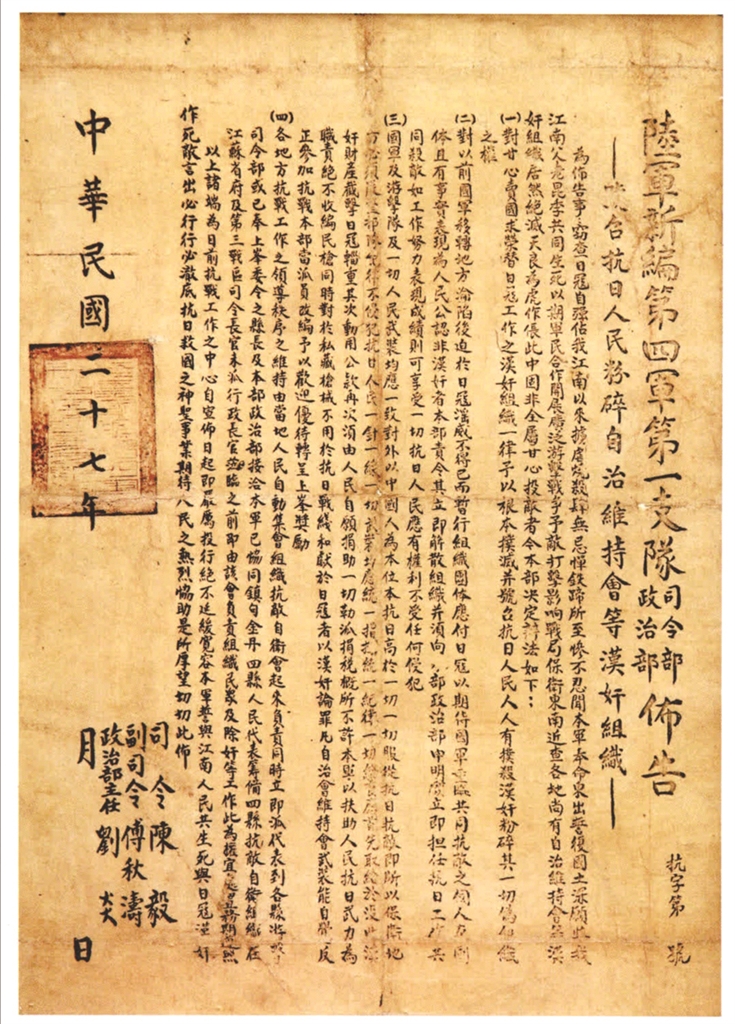 陸軍新編第四軍第一支隊司令部政治部佈告
抗字第 號
——聯合抗日人民粉碎自治維持會等漢奸組織——
為佈告事竊查日寇自強佔我江南以來擄虐兇殺肆無忌憚鉄蹄所至慘不忍聞本軍奉命東出誓復國土深願與我
江南父老昆季共同生死以期軍民合作開展廣泛游擊戰爭予敵打擊影响戰局保衛東南近查各地尚有自治維持會等漢
奸組織居然絕滅天良為虎作倀此中固非全屬甘心投敵者今本部决定辦法如下：
(一)對甘心賣國求榮替日寇工作之漢奸組織一律予以根本撲滅并號召抗日人民人人有撲殺漢奸粉碎其一切偽組織
之權
(二)對以前國軍移轉地方淪陷後迫於日寇淫威不得已而暫行組織團体應付日寇以期待國軍重臨共同抗敵之個人及團
体且有事實表現為人民公認非漢奸者本部責令其立即解散組織并須向 部政治部申明應立即担任抗日工作共
同殺敵如工作努力表現成績則可享受一切抗日人民應有權利不受任何侵犯
(三)國軍及游擊隊及一切人民武裝均應一致對外以中國人為本位本抗日高於一切一切服從抗日抗敵即所以保衛地
方 部隊紀律不侵犯抗日人民一針一綫一切武裝均應統一指揮統一紀律一切 首先取給於沒收漢
奸財產截擊日寇輜重其次動用公款再次須由人民自願捐助一切勒派捐税概所不許本軍以扶助人民抗日武力為
職責絕不收編民槍同時對於私藏槍械不用於抗日戰綫和獻於日寇者以漢奸論罪凡自治會維持會武裝能自拔反
正參加抗戰本部當派員改編予以歡迎優待轉呈上峯獎勵
(四)各地方抗戰工作之領導秩序之維持由當地人民自動集會組織抗敵自衛會起來負責同時立即派代表到各縣游擊
司令部或已奉上峯委令之縣長及本部政治部接洽本軍已恊同鎮句金丹四縣人民代表籌備四縣抗敵自衛組織在
江蘇省府及第三戰區司令長官未派行政長官蒞臨之前即由該會負責組織民衆及除奸等工作此為權宜 
以上諸端為目前抗戰工作之中心自宣佈日起即嚴厲執行絕不延緩寬容本軍誓與江南人民共生死與日寇漢奸
作死敵言出必行行必澈底抗日救國之神聖事業期待人民之熱烈恊助是所厚望切切此佈
司令陳毅
副司令傅秋濤
政治部主任劉炎
中華民國二十七年 月 日